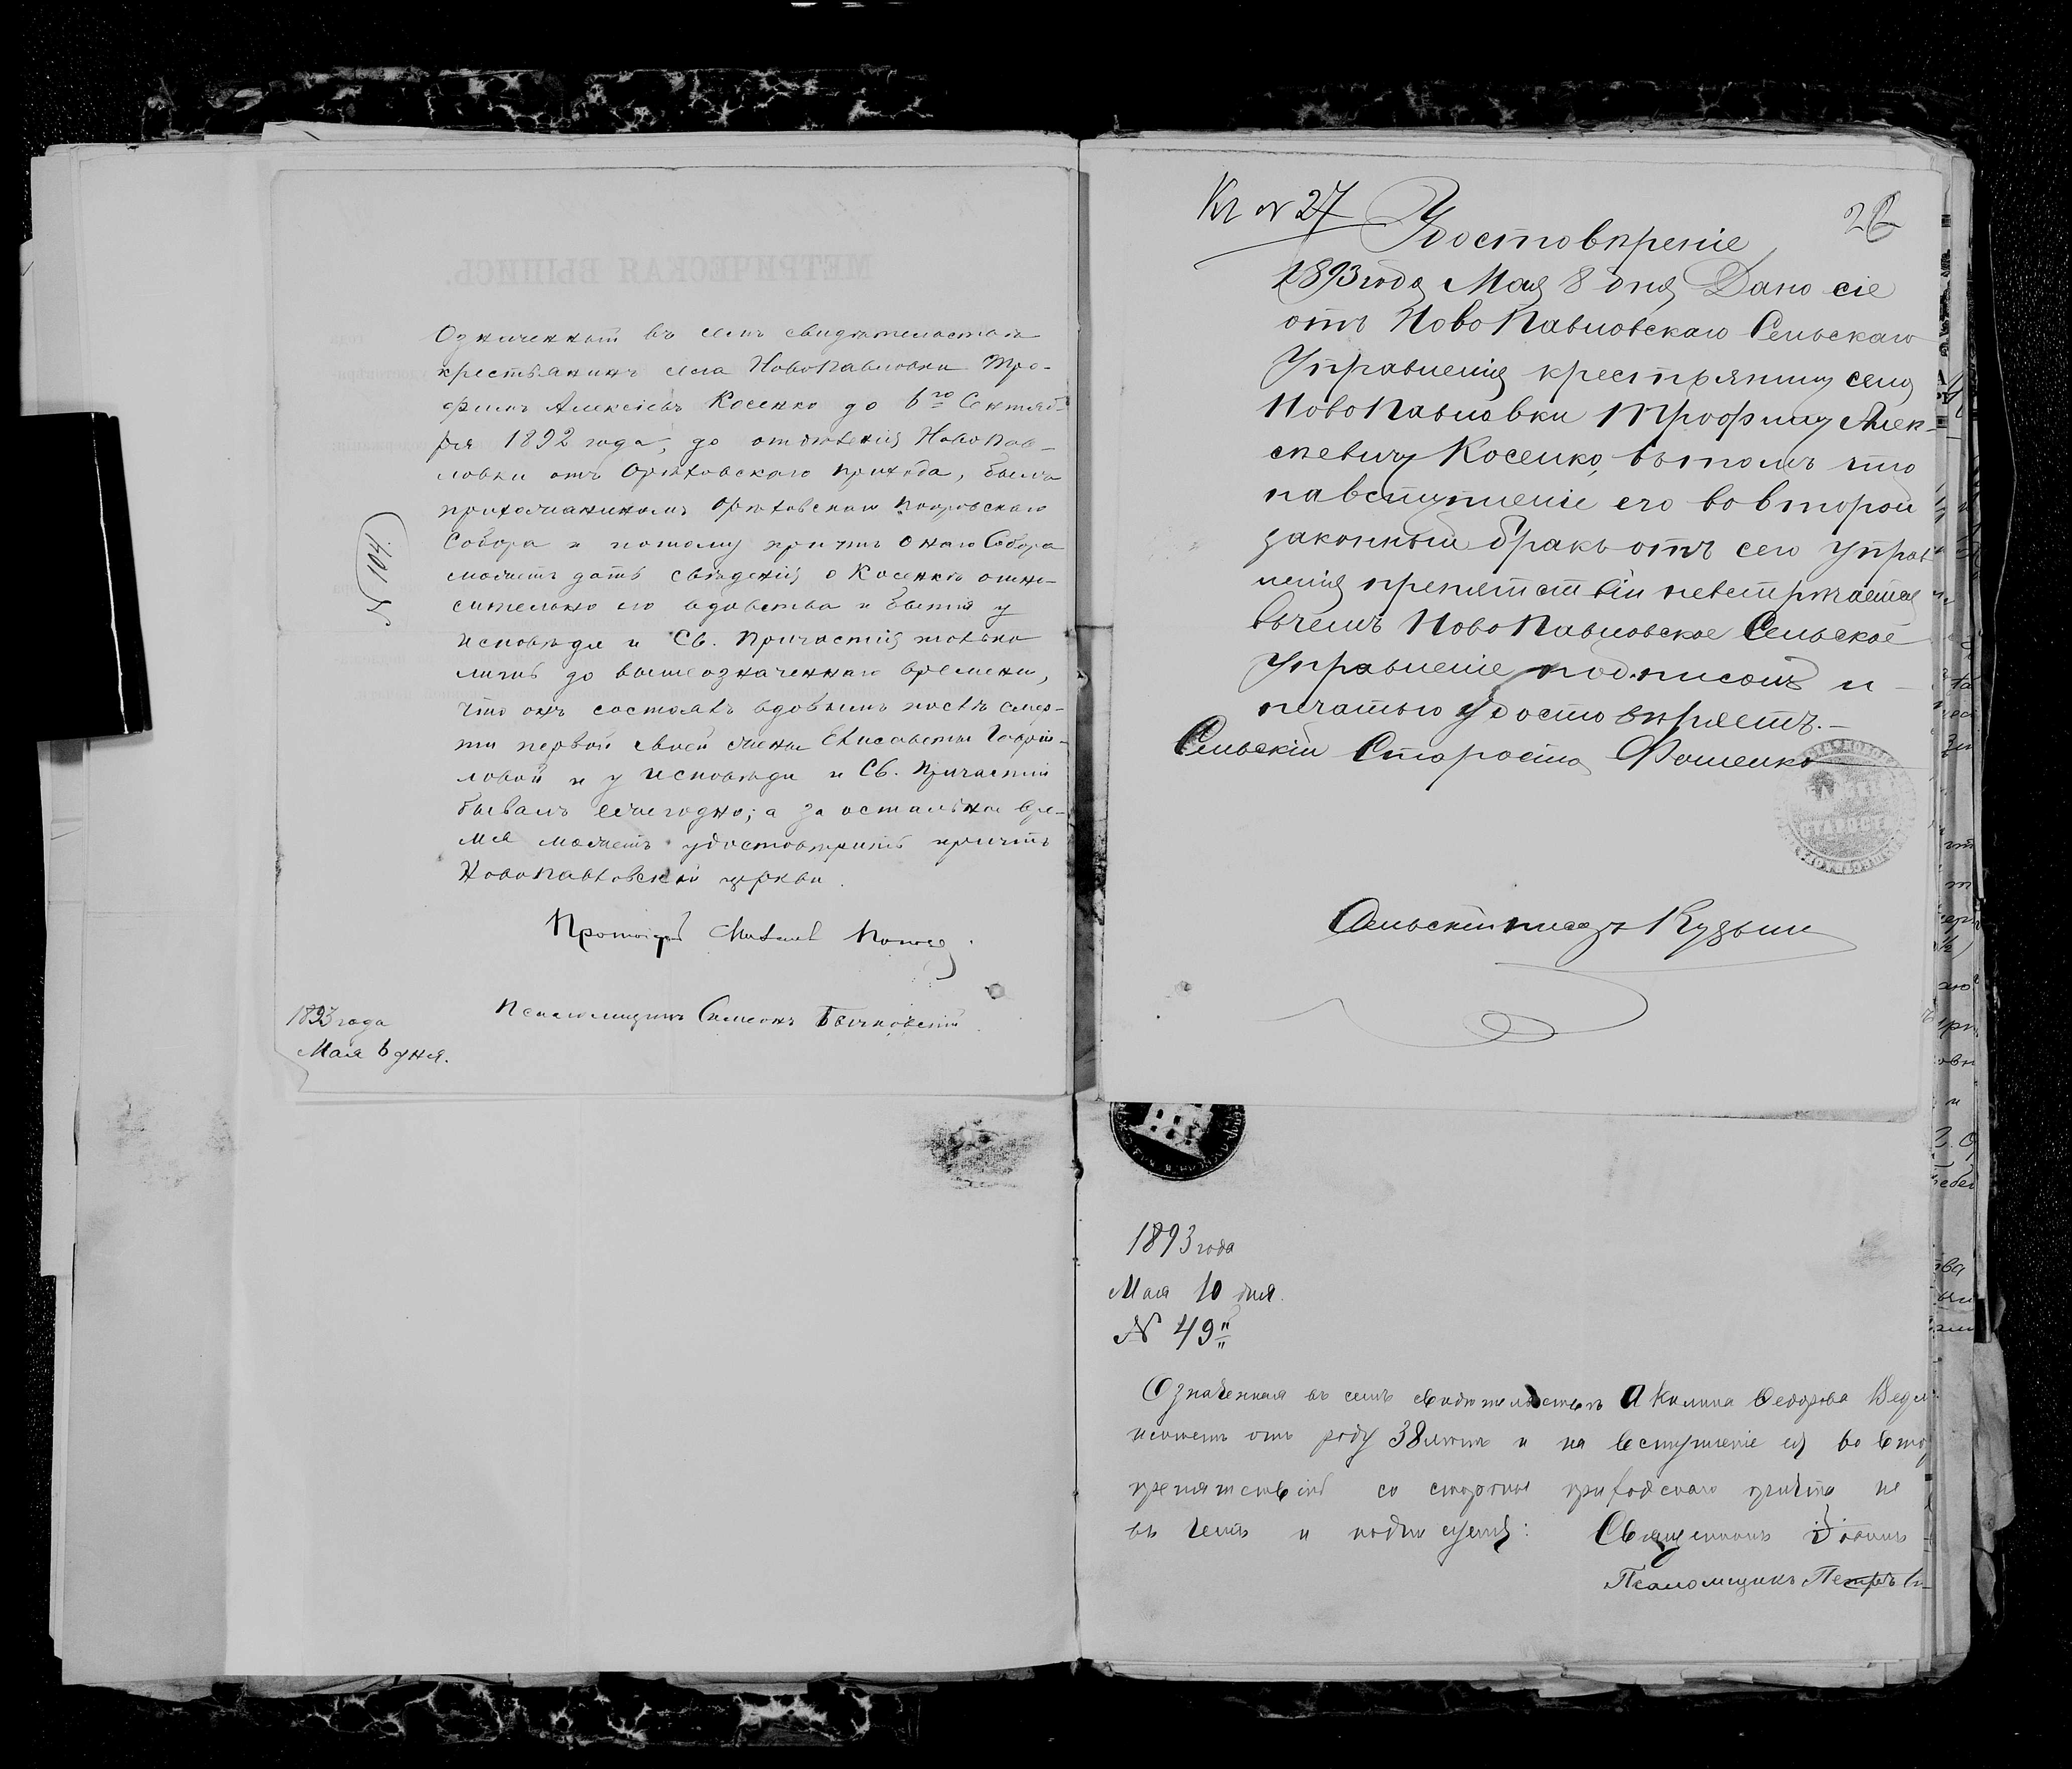 Означенный въ семъ свидѣтельствѣ
крестьянинъ села НовоПавловки Тро-
фимъ Алексѣевъ Косенко до 6го Сентяб-
ря 1892 года, до отдѣленія НовоПав-
ловки отъ Орѣховскаго прихода, былъ
прихожаниномъ Орѣховскаго Покровскаго
Собора и потому причтъ онаго Собора
можетъ дать свѣдѣнія о Косенкѣ отно-
сительно его вдовства и бытія у
исповѣди и Св. Причастія только
лишь до вышеозначеннаго времени,
что онъ состоялъ вдовымъ послѣ смер-
ти первой своей жены Елисаветы Гаврiи-
ловой и у исповѣди и Св. Причастія
бывалъ ежегодно; а за остальное вре-
мя можетъ удостовѣрить причтъ
НовоПавловской церкви.
Протоіерей Михаилъ Попов
Псаломщикъ Симеонъ Бычковскій
№ 104.
1893 года
Мая 6 дня.
МЕТРИЧЕСКАЯ ВЫПИСЬ.
Кг № 27
26
Удостовѣреніе
1893 года Мая 8 дня Дано сіе
отъ НовоПавловскаго Сельскаго
Управленія крестьянину села
НовоПавловки Трофиму Алек-
сѣевичу Косенко, вътомъ что
навступленіе его вовторой
законный бракъ отъ сего Управ
ленія препятствій невстрѣчается
вчемъ НовоПавловское Сельское
Управленіе подписомъ и
печатью удостовѣряетъ.
Сельскій Староста Фоменко
СТАРОСТЫ
Сельскій писарь Кузьми
1893 года
Мая 10 дня.
№ 49
Означенная въ семъ свидѣтельствѣ Акилина Ѳедорова Ведм
имѣетъ отъ роду 38 лѣтъ и на вступленіе ея во вто
препятствій со стороны приходскаго причта не
въ чемъ и подписуемся: Священникъ Іоаннъ
Псаломщикъ Петръ